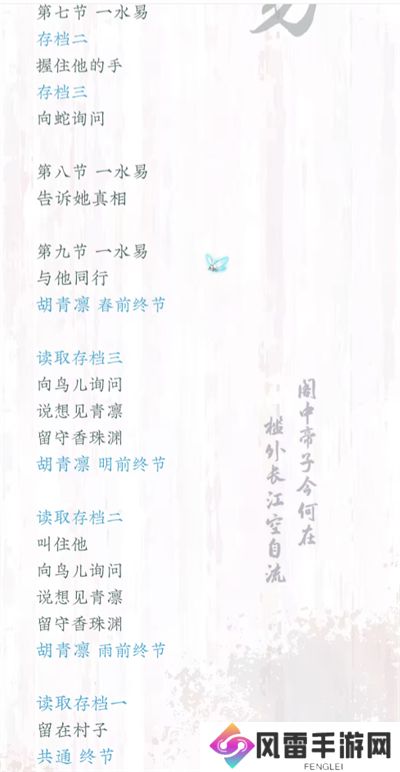 易
第七节 一水易
存档二
握住他的手
存档三
向蛇询问
第八节 一水易
告诉她真相
第九节 一水易
与他同行
胡青凛 春前终节
读取存档三
向鸟儿询问
说想见青凛
留守香珠渊
胡青凛 明前终节
读取存档二
叫住他
向鸟儿询问
说想见青凛
留守香珠渊
胡青凛 雨前终节
读取存档一
留在村子
共通 终节
阁中帝子今何在
槛外长江空自流
风雷手游网
FENGLEI